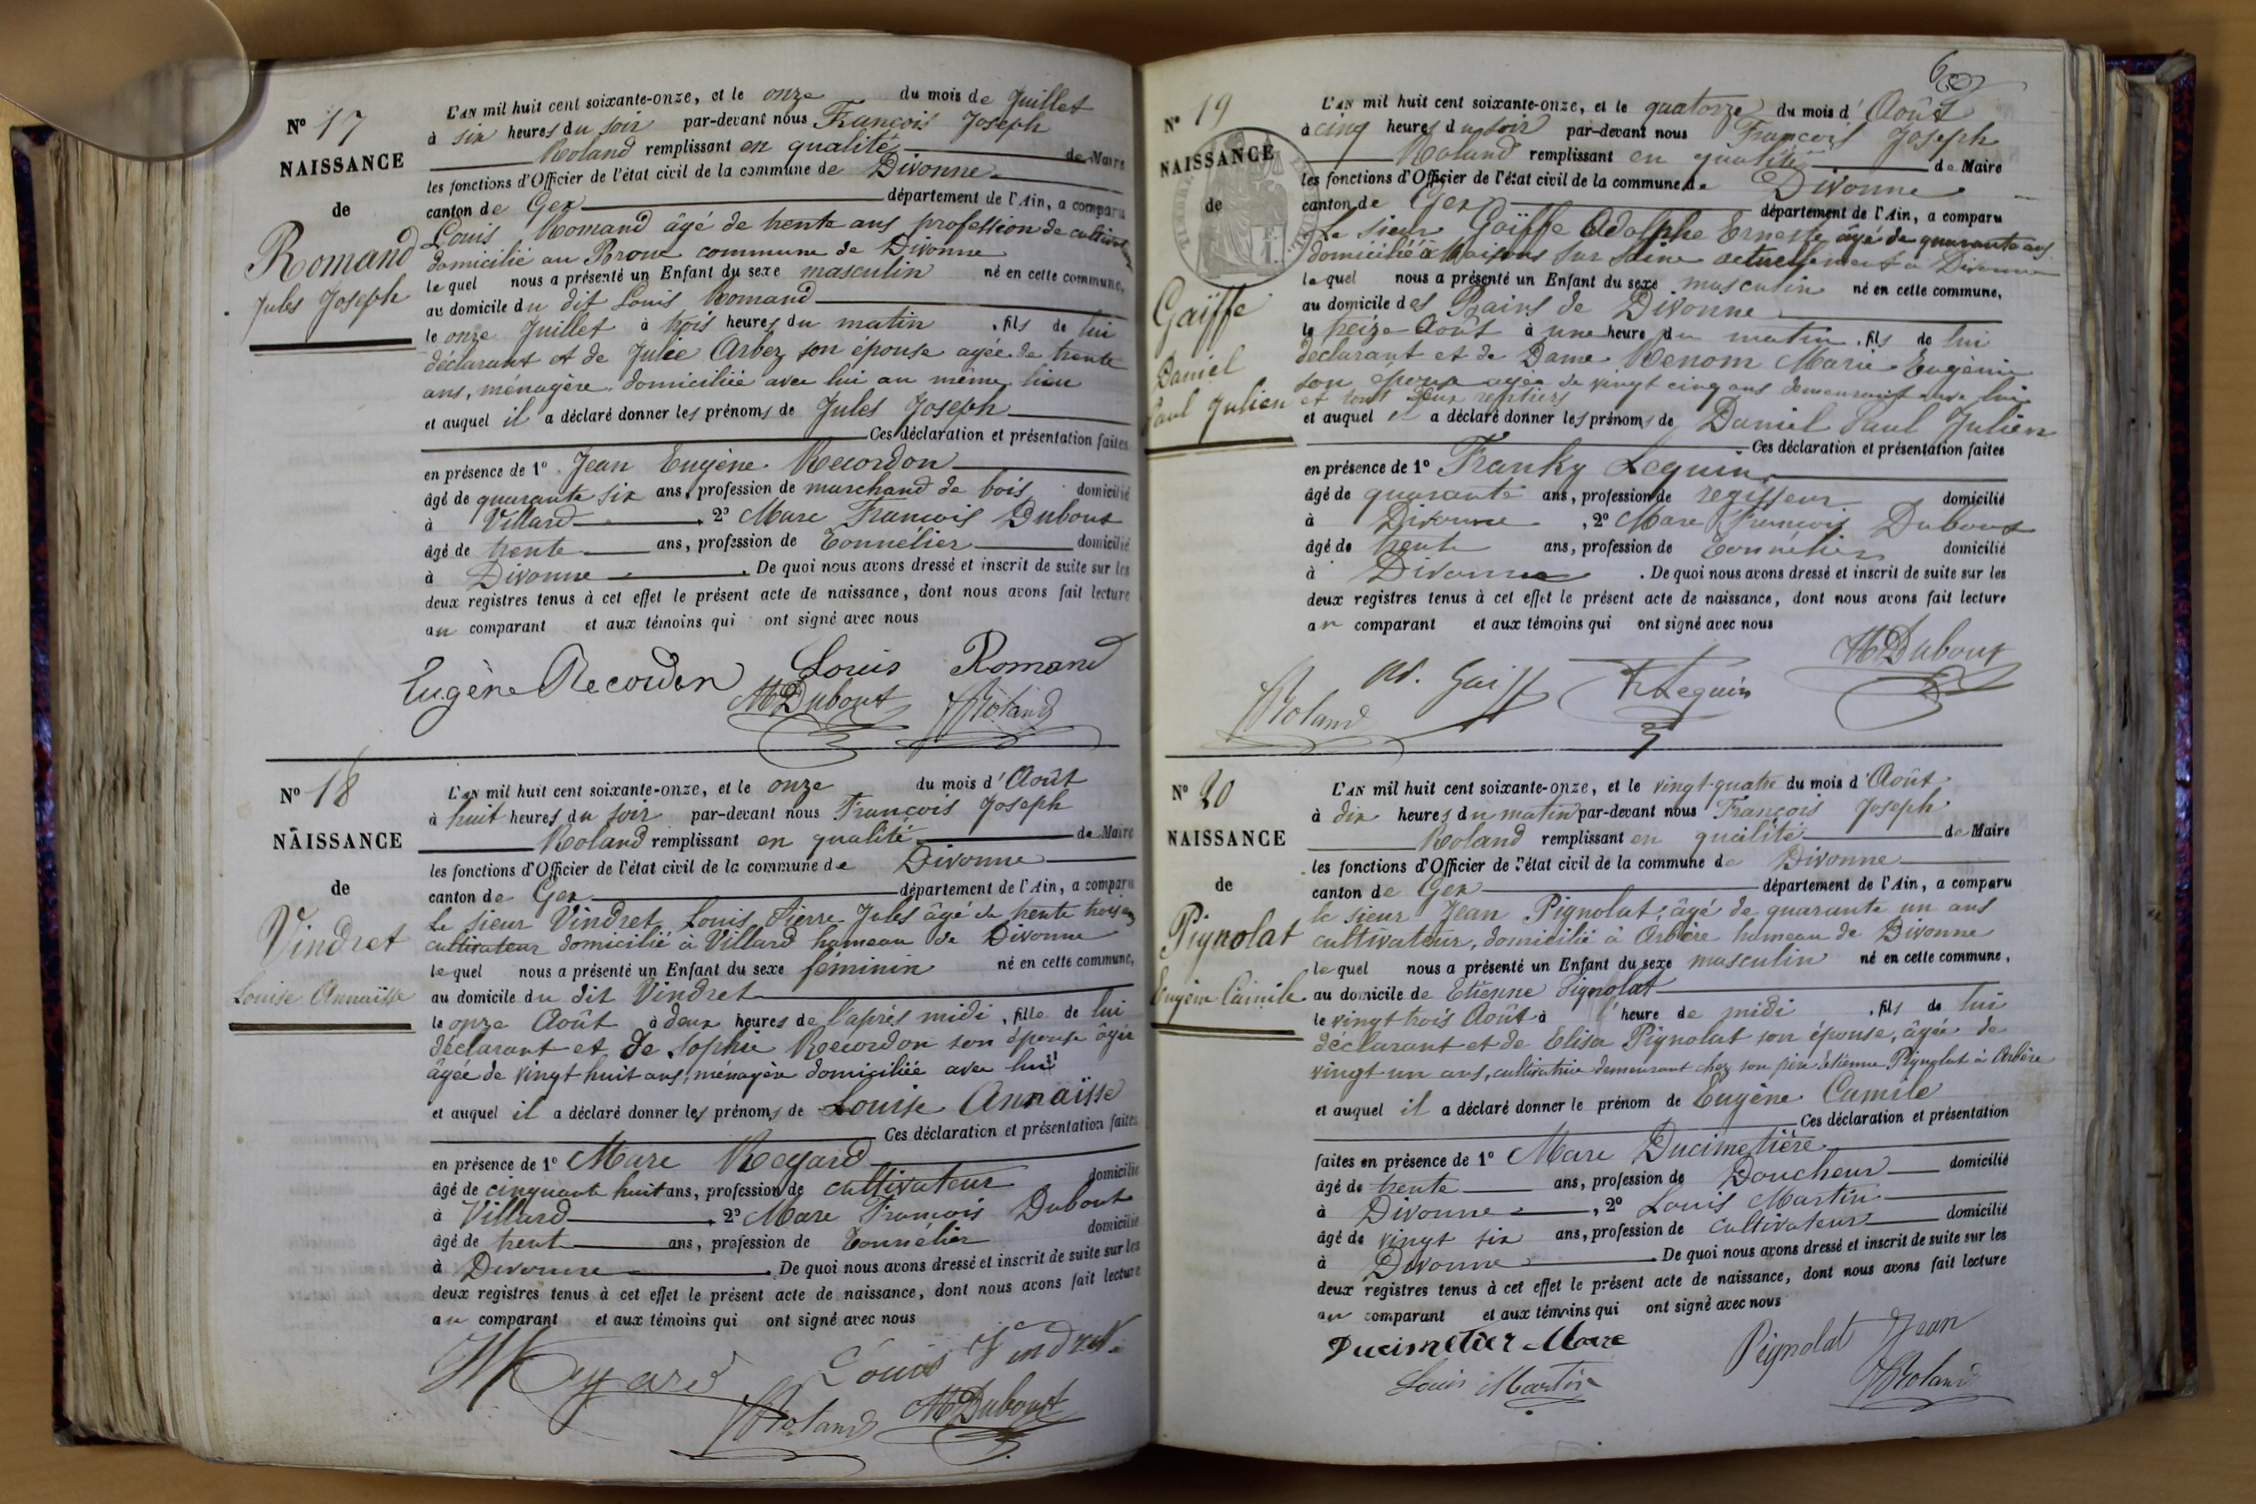 N° 17
NAISSANCE
de
Romand
Jules Joseph
L'AN mil huit cent soixante-onze, et le onze du mois de Juillet
à six heures du soir par-devant nous François Joseph
Roland remplissant en qualité de Maire
les fonctions d'Officier de l'état civil de la commune de Divonne
canton de Gex département de l'Ain, a comparu
Louis Romand âgé de trente ans profession de cultivateur
domicilié au commune de Divonne
lequel nous a présenté un Enfant du sexe masculin né en cette commune,
au domicile du dit Louis Romand
le onze Juillet à trois heures du matin, fils de lui
déclarant et de Julie Arbez son épouse agée de trente
ans, ménagère domiciliée avec lui au même lieu
et auquel il a déclaré donner les prénoms de Jules Joseph
Ces déclaration et présentation faites
en présence de 1° Jean Eugène Recordon
âgé de quarante six ans, profession de marchand de bois domicilié
à Villard, 2° Marc François Dubout
âgé de trente ans, profession de Tonnélier domicilié
à Divonne. De quoi nous avons dressé et inscrit de suite sur les
deux registres tenus à cet effet le présent acte de naissance, dont nous avons fait lecture
au comparant et aux témoins qui ont signé avec nous
Eugène Recordon Louis Romand
M Dubout Roland
N° 18
NAISSANCE
de
Vindret
Louise Annaïsse
L'AN mil huit cent soixante-onze, et le onze du mois d'Août
à huit heures du soir par-devant nous François Joseph
Roland remplissant en qualité de Maire
les fonctions d'Officier de l'état civil de la commune de Divonne
canton de Gex département de l'Ain, a comparu
Le sieur Vindret Louis Pierre Jules âgé de trente trois ans
cultivateur domicilié à Villard hameau de Divonne
lequel nous a présenté un Enfant du sexe féminin né en cette commune,
au domicile du dit Vindret
le onze Août à deux heures de l'après midi, fille de lui
déclarant et de Sophie Recordon son épouse âgée
âgée de vingt huit ans, ménagère domiciliée avec lui
et auquel il a déclaré donner les prénoms de Louise Annaïsse
Ces déclaration et présentation faites
en présence de 1° Marc Regard
âgé de cinquante huit ans, profession de cultivateur domicilié
à Villard, 2° Marc François Dubout
âgé de trent ans, profession de Tonnélier domicilié
à Divonne. De quoi nous avons dressé et inscrit de suite sur les
deux registres tenus à cet effet le présent acte de naissance, dont nous avons fait lecture
au comparant et aux témoins qui ont signé avec nous
Louis Vindret
Roland M Dubout
N° 19
NAISSANCE
de
Gaïffe
Daniel
Paul Julien
L'AN mil huit cent soixante-onze, et le quatorze du mois d'Août
à cinq heures du soir par-devant nous François Joseph
Roland remplissant en qualité de Maire
les fonctions d'Officier de l'état civil de la commune de Divonne
canton de Gex département de l'Ain, a comparu
Le sieur Gaïffe Adolphe Erneste âgé de quarante ans
domicilié à Maisons sur Seine actuellement à Divonne
lequel nous a présenté un Enfant du sexe masculin né en cette commune,
au domicile des Bains de Divonne
le treize Août à une heure du matin, fils de lui
déclarant et de Dame Renom Marie Eugénie
son épouse agée de vingt cinq ans demeurant avec lui
et tous deux rentiers
et auquel il a déclaré donner les prénoms de Daniel Paul Julien
Ces déclaration et présentation faites
en présence de 1° Franky Lequin
âgé de quarante ans, profession de regisseur domicilié
à Divonne, 2° Marc François Dubout
âgé de trente ans, profession de Tonnélier domicilié
à Divonne. De quoi nous avons dressé et inscrit de suite sur les
deux registres tenus à cet effet le présent acte de naissance, dont nous avons fait lecture
au comparant et aux témoins qui ont signé avec nous
M Dubout
Roland Ad. Gaiffe Lequin
N° 20
NAISSANCE
de
Pignolat
Eugène Camile
L'AN mil huit cent soixante-onze, et le vingt-quatre du mois d'Août
à dix heures du matin par-devant nous François Joseph
Roland remplissant en qualité de Maire
les fonctions d'Officier de l'état civil de la commune de Divonne
canton de Gex département de l'Ain, a comparu
le sieur Jean Pignolat, âgé de quarante un ans
cultivateur, domicilié à Arbère hameau de Divonne
lequel nous a présenté un Enfant du sexe masculin né en cette commune,
au domicile de Etienne Pignolat
le vingt trois Août à l'heure de midi, fils de lui
déclarant et de Elisa Pignolat son épouse, âgée de
vingt un ans, cultivatrice demeurant chez son père Etienne Pignolat à Arbère
et auquel il a déclaré donner le prénom de Eugène Camile
Ces déclaration et présentation
faites en présence de 1° Marc Ducimetière
âgé de trente ans, profession de Doucheur domicilié
à Divonne, 2° Louis Martin
âgé de vingt six ans, profession de cultivateur domicilié
à Divonne. De quoi nous avons dressé et inscrit de suite sur les
deux registres tenus à cet effet le présent acte de naissance, dont nous avons fait lecture
au comparant et aux témoins qui ont signé avec nous
Ducimetier Marc Pignolat Jean
Louis Martin Roland